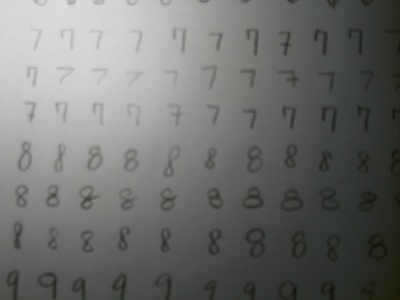 7 7 7 7 7 7 7 7 7 7 7
7 7 7 7 7 7 7 7 7 7 7
7 7 7 7 7 7 7 7 7 7 7
8 8 8 8 8 8 8 8 8 8 8
8 8 8 8 8 8 8 8 8 8
8 8 8 8 8 8 8 8 8 8
9 9 9 9 9 9 9 9 9 9